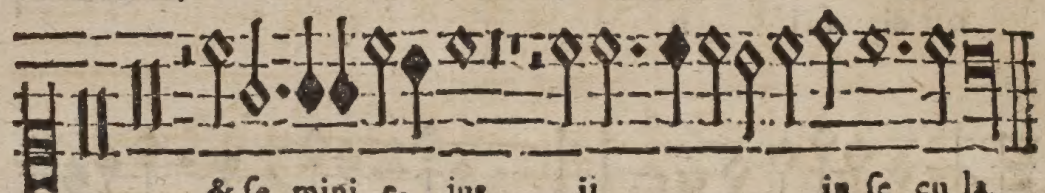 & ſe mini e- ius ij in ſe cu la